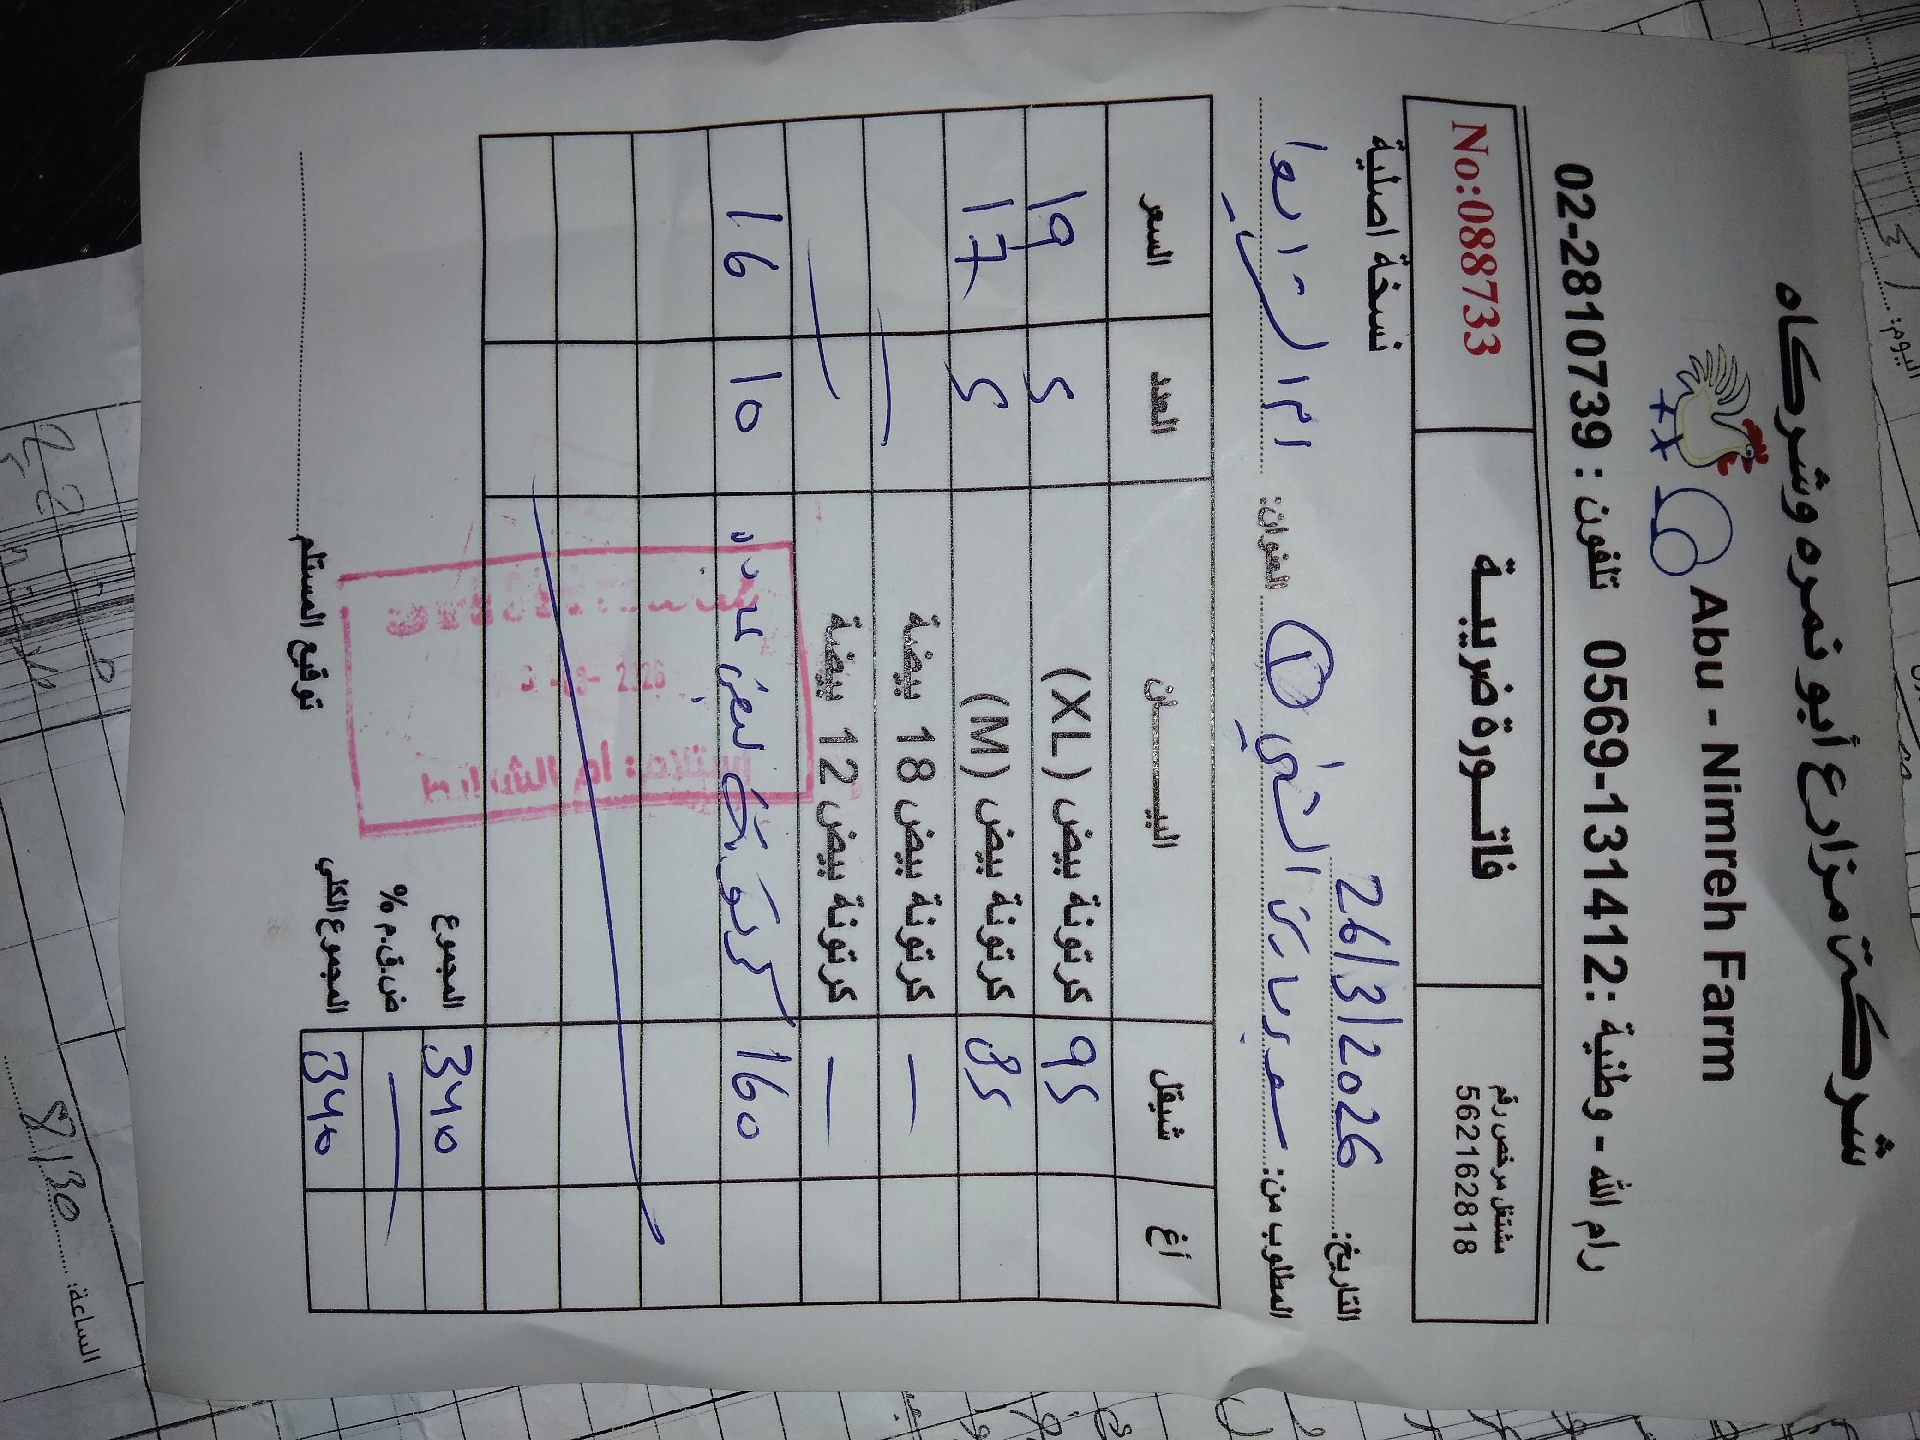 شركة مزارع أبو نمره وشركاه
Abu - Nimreh Farm
رام الله - وطنية : 0569-131412 تلفون : 02-2810739
مشتغل مرخص رقم
562162818
فاتـــورة ضريبـــة
No:088733
التاريخ: 26/3/2026
نسخة اصلية
المطلوب من: العنوان: ام الشرايط
شيقل أغ البيـــــان العدد السعر
95 كرتونة بيض (XL) 5 19
85 كرتونة بيض (M) 5 17
— كرتونة بيض 18 بيضة —
— كرتونة بيض 12 بيضة —
160 كرتونة بيض 10 16
2026
إستلام: ام الشرايط
المجموع 340
ض.ق.م % —
المجموع الكلي 340
توقيع المستلم
اليوم:
الساعة: 8:30